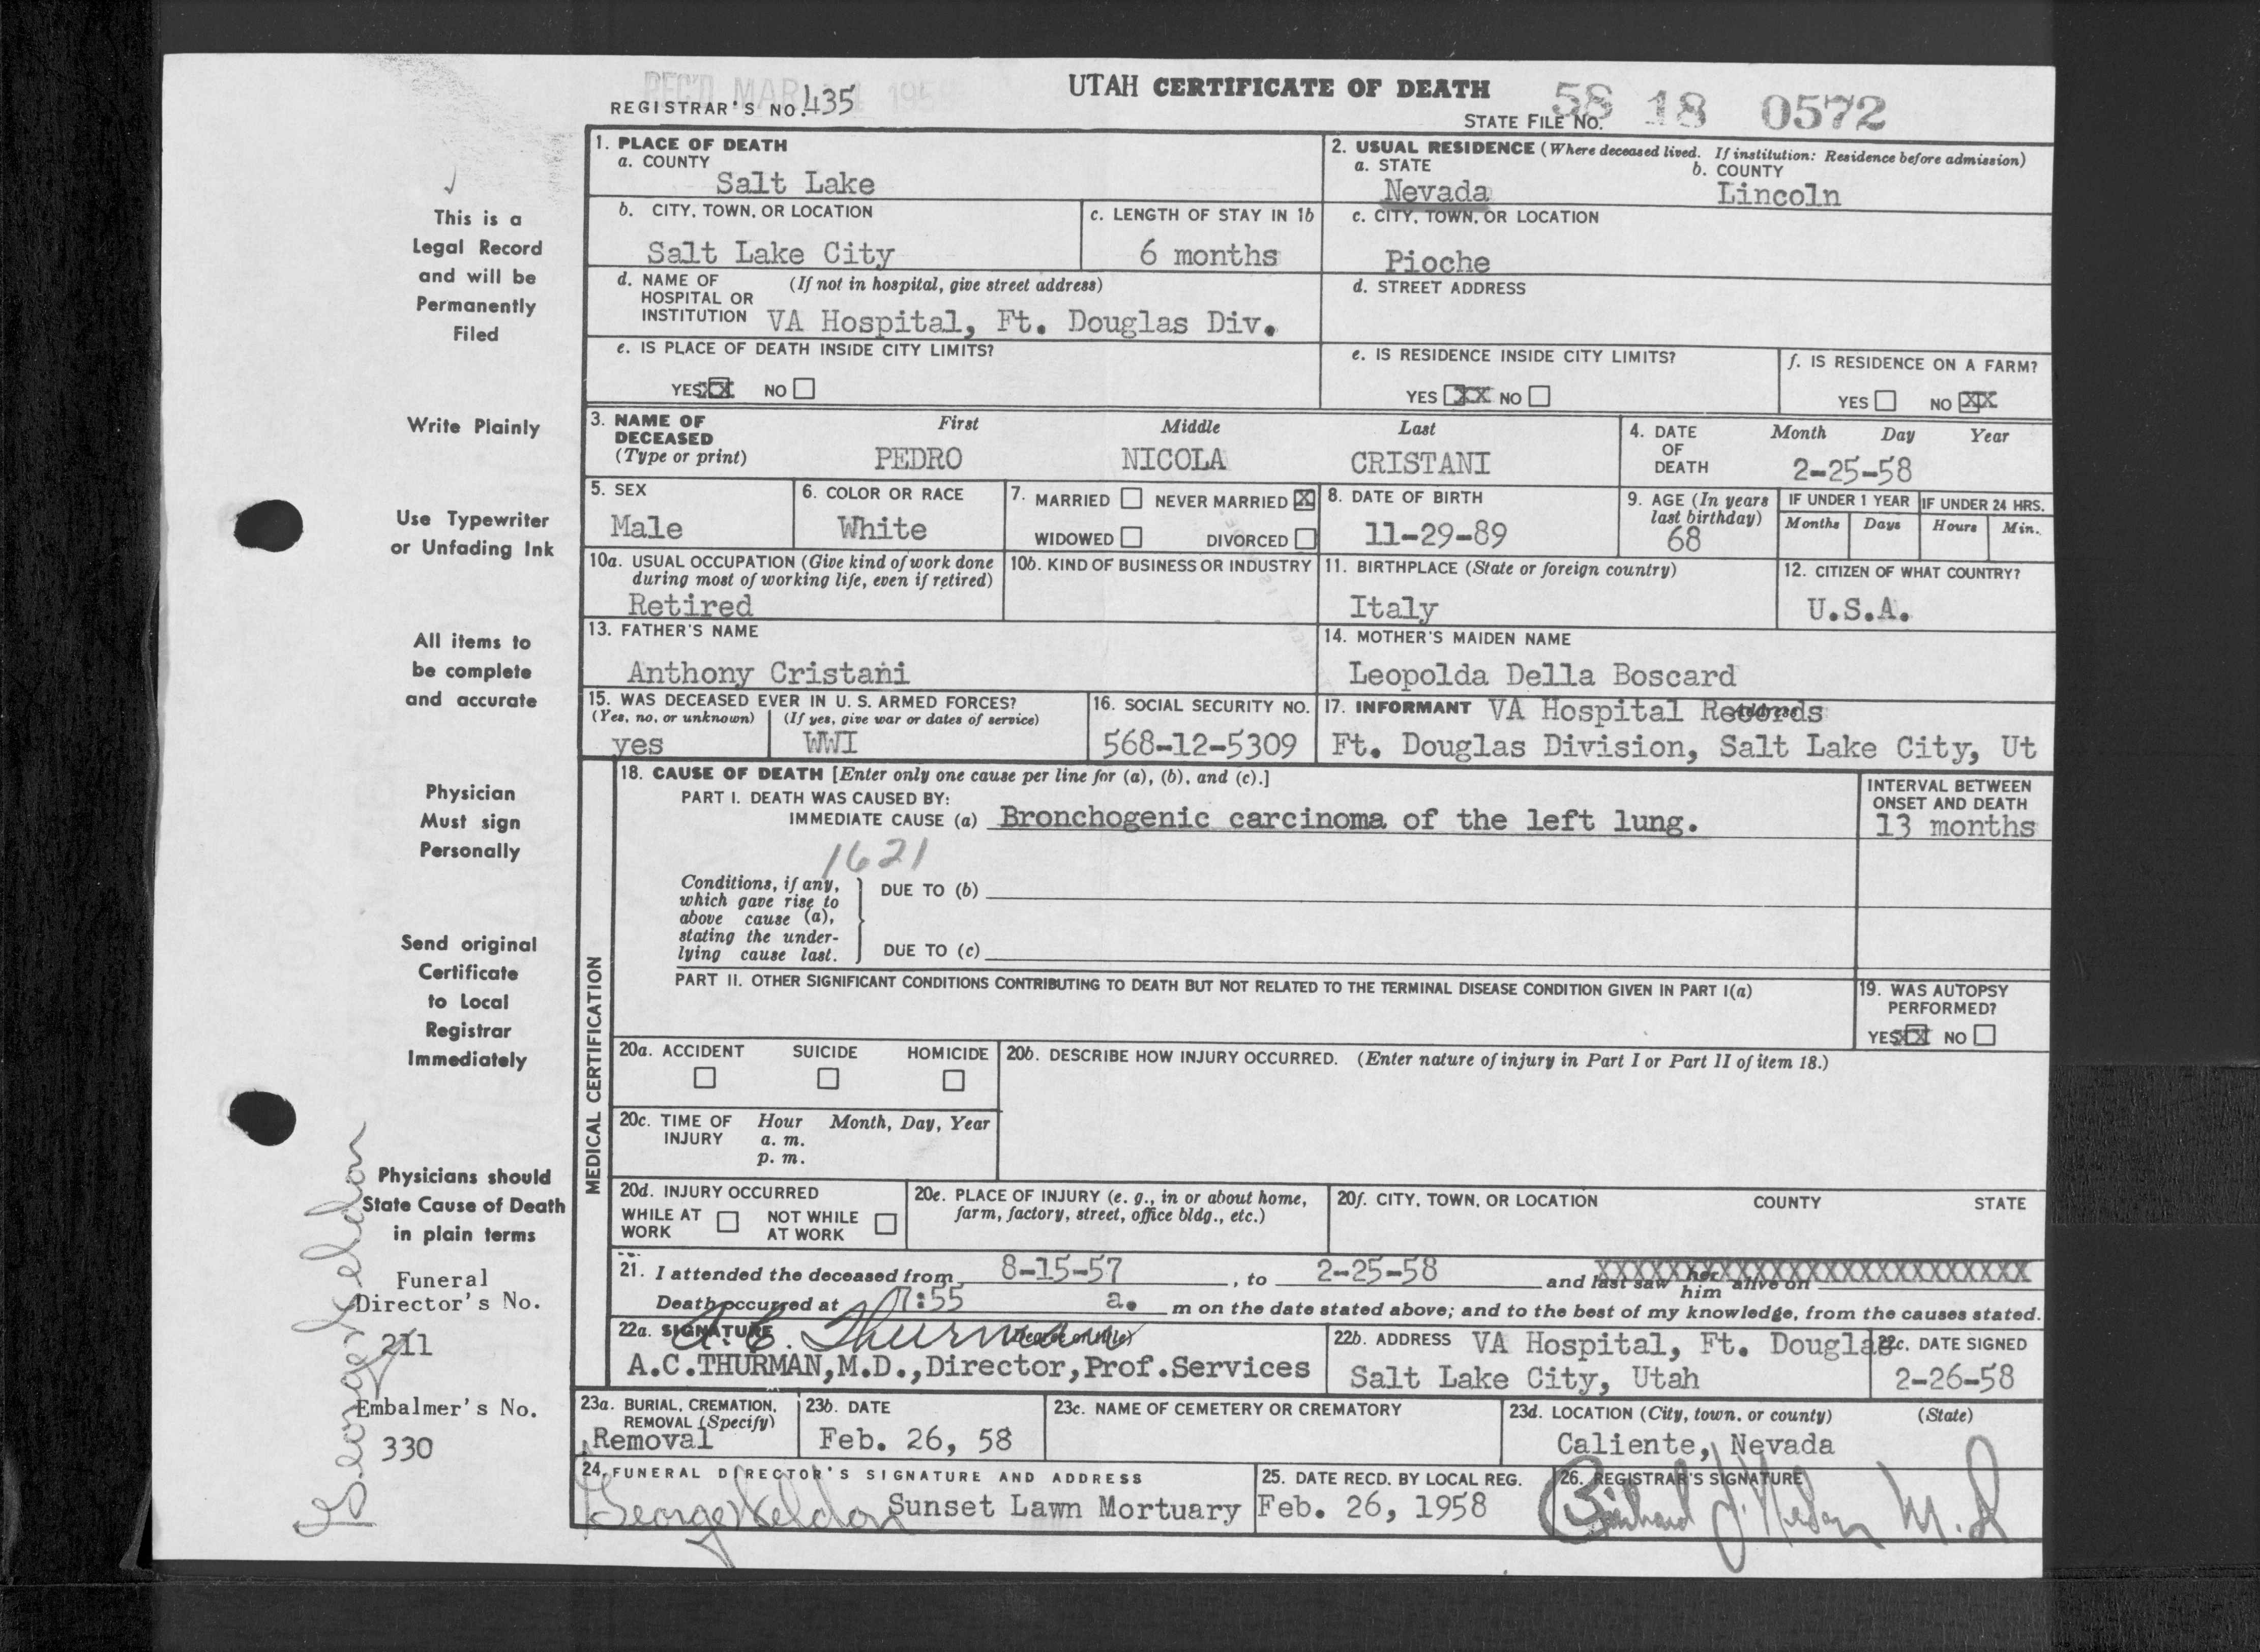 REC'D MAR 195
UTAH CERTIFICATE OF DEATH
REGISTRAR'S NO. 435
STATE FILE NO. 58 18 0572
This is a
Legal Record
and will be
Permanently
Filed
Write Plainly
Use Typewriter
or Unfading Ink
All items to
be complete
and accurate
Physician
Must sign
Personally
Send original
Certificate
to Local
Registrar
Immediately
Physicians should
State Cause of Death
in plain terms
Funeral
Director's No.
211
Embalmer's No.
330
George Keldon
1. PLACE OF DEATH
a. COUNTY
Salt Lake
2. USUAL RESIDENCE (Where deceased lived. If institution: Residence before admission)
a. STATE b. COUNTY
Nevada Lincoln
b. CITY, TOWN, OR LOCATION
Salt Lake City
c. LENGTH OF STAY IN 1b
6 months
c. CITY, TOWN, OR LOCATION
Pioche
d. NAME OF (If not in hospital, give street address)
HOSPITAL OR
INSTITUTION VA Hospital, Ft. Douglas Div.
d. STREET ADDRESS
e. IS PLACE OF DEATH INSIDE CITY LIMITS?
YES XX NO
e. IS RESIDENCE INSIDE CITY LIMITS?
YES XX NO
f. IS RESIDENCE ON A FARM?
YES NO XX
3. NAME OF First Middle Last
DECEASED
(Type or print) PEDRO NICOLA CRISTANI
4. DATE Month Day Year
OF
DEATH 2-25-58
5. SEX
Male
6. COLOR OR RACE
White
7. MARRIED NEVER MARRIED X
WIDOWED DIVORCED
8. DATE OF BIRTH
11-29-89
9. AGE (In years
last birthday)
68
IF UNDER 1 YEAR IF UNDER 24 HRS.
Months Days Hours Min.
10a. USUAL OCCUPATION (Give kind of work done
during most of working life, even if retired)
Retired
10b. KIND OF BUSINESS OR INDUSTRY
11. BIRTHPLACE (State or foreign country)
Italy
12. CITIZEN OF WHAT COUNTRY?
U.S.A.
13. FATHER'S NAME
Anthony Cristani
14. MOTHER'S MAIDEN NAME
Leopolda Della Boscard
15. WAS DECEASED EVER IN U. S. ARMED FORCES?
(Yes, no, or unknown) (If yes, give war or dates of service)
yes WWI
16. SOCIAL SECURITY NO.
568-12-5309
17. INFORMANT VA Hospital Records Address
Ft. Douglas Division, Salt Lake City, Ut
MEDICAL CERTIFICATION
18. CAUSE OF DEATH [Enter only one cause per line for (a), (b), and (c).]
PART I. DEATH WAS CAUSED BY:
IMMEDIATE CAUSE (a) Bronchogenic carcinoma of the left lung.
INTERVAL BETWEEN
ONSET AND DEATH
13 months
1621
Conditions, if any,
which gave rise to
above cause (a),
stating the under-
lying cause last.
DUE TO (b)
DUE TO (c)
PART II. OTHER SIGNIFICANT CONDITIONS CONTRIBUTING TO DEATH BUT NOT RELATED TO THE TERMINAL DISEASE CONDITION GIVEN IN PART I(a)
19. WAS AUTOPSY
PERFORMED?
YES XX NO
20a. ACCIDENT SUICIDE HOMICIDE
20b. DESCRIBE HOW INJURY OCCURRED. (Enter nature of injury in Part I or Part II of item 18.)
20c. TIME OF Hour Month, Day, Year
INJURY a. m.
p. m.
20d. INJURY OCCURRED
WHILE AT NOT WHILE
WORK AT WORK
20e. PLACE OF INJURY (e. g., in or about home,
farm, factory, street, office bldg., etc.)
20f. CITY, TOWN, OR LOCATION COUNTY STATE
21. I attended the deceased from 8-15-57, to 2-25-58 and last saw her him alive on XXXXXXXXXXXXXXXXXXXXXXXX
Death occurred at 7:55 a. m on the date stated above; and to the best of my knowledge, from the causes stated.
22a. SIGNATURE (Degree or title)
A. C. Thurman
A.C.THURMAN,M.D.,Director,Prof.Services
22b. ADDRESS VA Hospital, Ft. Douglas
Salt Lake City, Utah
22c. DATE SIGNED
2-26-58
23a. BURIAL, CREMATION,
REMOVAL (Specify)
Removal
23b. DATE
Feb. 26, 58
23c. NAME OF CEMETERY OR CREMATORY
23d. LOCATION (City, town, or county) (State)
Caliente, Nevada
24. FUNERAL DIRECTOR'S SIGNATURE AND ADDRESS
George Keldon Sunset Lawn Mortuary
25. DATE RECD. BY LOCAL REG.
Feb. 26, 1958
26. REGISTRAR'S SIGNATURE
M.D